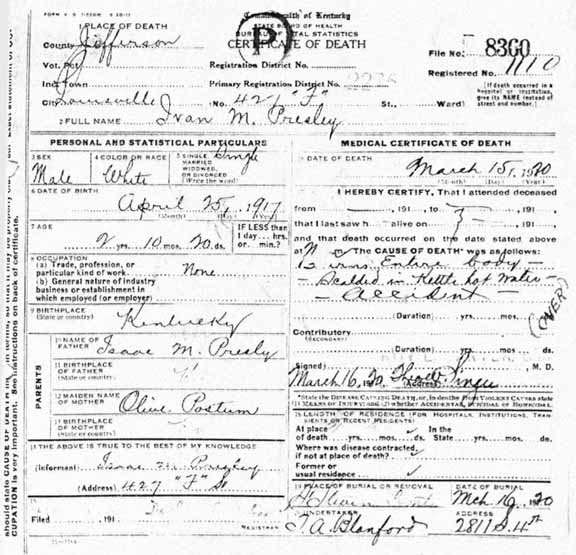 FORM V. S.
Commonwealth of Kentucky
STATE BOARD OF HEALTH
BUREAU OF VITAL STATISTICS
CERTIFICATE OF DEATH
P
1 PLACE OF DEATH
County Jefferson
Vot. Pct.
Inc. Town
City Louisville
No. 427 "F" St., Ward)
Registration District No.
Primary Registration District No.
File No. 8360
Registered No. 1110
[If death occurred in a hospital or institution, give its NAME instead of street and number.]
2 FULL NAME Ivan M. Presley
PERSONAL AND STATISTICAL PARTICULARS
3 SEX
Male
4 COLOR OR RACE
White
5 SINGLE, MARRIED, WIDOWED, OR DIVORCED
(Write the word)
Single
6 DATE OF BIRTH
April 25, 1917
(Month) (Day) (Year)
7 AGE
2 yrs. 10 mos. 20 ds.
IF LESS than 1 day ... hrs. or min.?
8 OCCUPATION
(a) Trade, profession, or particular kind of work None
(b) General nature of industry business or establishment in which employed (or employer)
9 BIRTHPLACE
(State or country)
Kentucky
PARENTS
10 NAME OF FATHER
Isaac M. Presly
11 BIRTHPLACE OF FATHER
(State or country)
12 MAIDEN NAME OF MOTHER
Olive Postum
(State or country)
THE ABOVE IS TRUE TO THE BEST OF MY KNOWLEDGE
(Informant) Isaac M. Presley
(Address) 427 "F" St
Filed , 191
REGISTRAR
MEDICAL CERTIFICATE OF DEATH
DATE OF DEATH
March 15, 1920
(Month) (Day) (Year)
I HEREBY CERTIFY, That I attended deceased
from , 191 , to
that I last saw h alive on
and that death occurred on the date stated above
at The CAUSE OF DEATH* was as follows:
Burns Entire body
Scalded in Kettle hot water
Accident
(OVER)
(Duration) yrs. mos. ds.
Contributory
(SECONDARY)
(Duration) yrs. mos. ds.
Signed M. D.
March 16, 1920 (Address)
*State the DISEASE CAUSING DEATH, or, in deaths from VIOLENT CAUSES state
(1) MEANS OF INJURY; and (2) whether ACCIDENTAL, SUICIDAL or HOMICIDAL.
LENGTH OF RESIDENCE (FOR HOSPITALS, INSTITUTIONS, TRANSIENTS OR RECENT RESIDENTS)
At place of death yrs. mos. ds. In the State yrs. mos. ds.
Where was disease contracted, if not at place of death?
Former or usual residence
PLACE OF BURIAL OR REMOVAL
DATE OF BURIAL
Mch 16, 1920
UNDERTAKER
T. A. Blanford
ADDRESS
2811 S. 4th
should state CAUSE OF DEATH in terms, so that it may be properly
CUPATION is very important. See instructions on back of certificate.